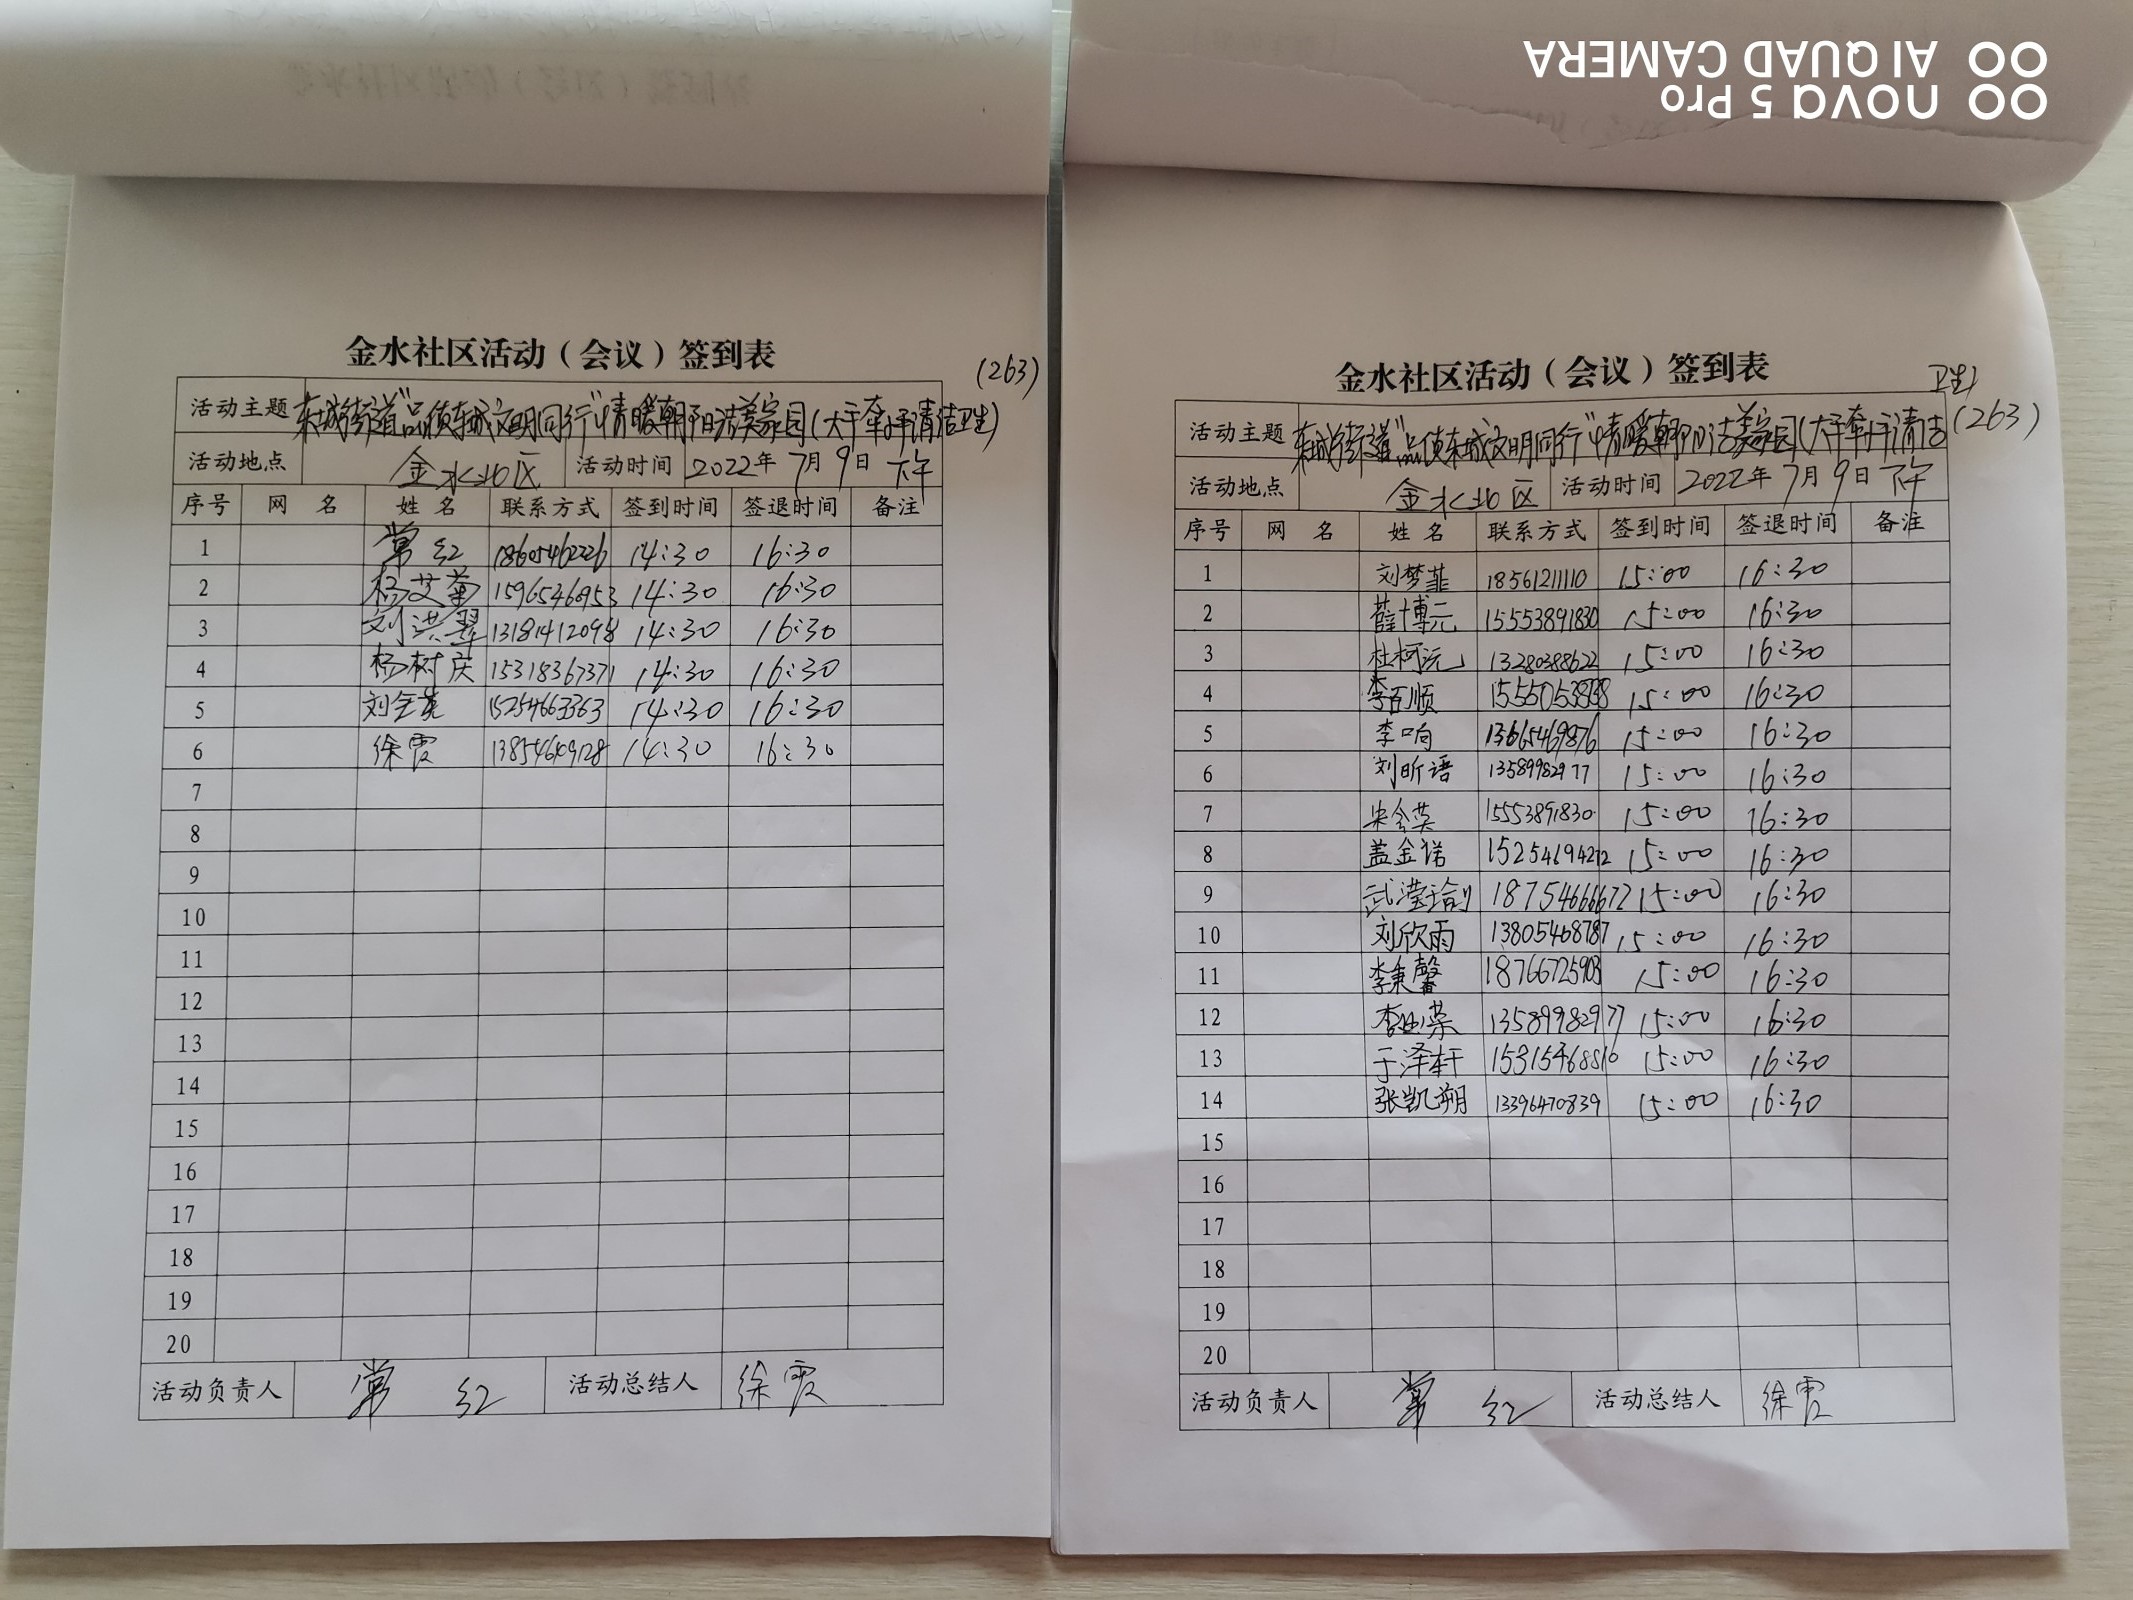 nova 5 Pro
AI QUAD CAMERA
金水社区活动（会议）签到表
(263)
活动主题 东城街道"品质东城文明同行"情暖朝阳洁美家园(大手牵小手清洁卫生)
活动地点 金水北区 活动时间 2022年7月9日下午
序号 网 名 姓 名 联系方式 签到时间 签退时间 备注
1 常红 18605462226 14:30 16:30
2 杨艾菊 15965346953 14:30 16:30
3 刘洪翠 13181412098 14:30 16:30
4 杨树庆 15318367371 14:30 16:30
5 刘金英 15254663363 14:30 16:30
6 徐霞 13854609128 14:30 16:30
7
8
9
10
11
12
13
14
15
16
17
18
19
20
活动负责人 常红 活动总结人 徐霞
金水社区活动（会议）签到表
卫生)
(263)
活动主题 东城街道"品质东城文明同行"情暖朝阳洁美家园(大手牵小手清洁
活动地点 金水北区 活动时间 2022年7月9日下午
序号 网 名 姓 名 联系方式 签到时间 签退时间 备注
1 刘梦菲 18561211110 15:00 16:30
2 薛博元 15553891830 15:00 16:30
3 杜柯沅 13280388622 15:00 16:30
4 李百顺 15:00 16:30
5 李响 13665469876 15:00 16:30
6 刘昕语 13589982977 15:00 16:30
7 宋会英 15553891830 15:00 16:30
8 盖金诺 15254694272 15:00 16:30
9 武滢瑜 18754666672 15:00 16:30
10 刘欣雨 13805468787 15:00 16:30
11 李秉馨 18766725903 15:00 16:30
12 13589982977 15:00 16:30
13 于泽轩 15315468816 15:00 16:30
14 张凯翔 13396470839 15:00 16:30
15
16
17
18
19
20
活动负责人 常红 活动总结人 徐霞